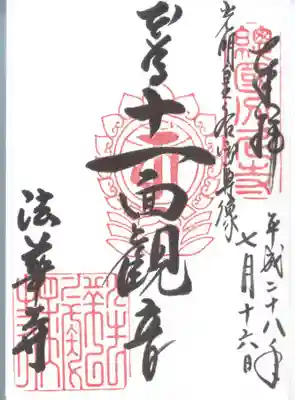 奉拝
平成二十八年
七月十六日
光明皇后御尊像
本尊十一面觀音
法華寺